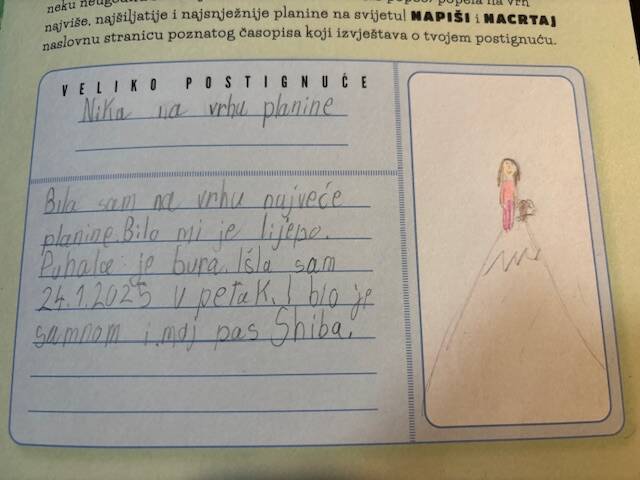 najviše, najšiljatije i najsnježnije planine na svijetu! NAPIŠI i NACRTAJ
naslovnu stranicu poznatog časopisa koji izvještava o tvojem postignuću.
VELIKO POSTIGNUĆE
Nika na vrhu planine
Bila sam na vrhu najveće
planine. Bilo mi je lijepo.
Puhala je bura. Išla sam
24.1.2025 v petak. I bio je
samnom i moj pas Shiba.